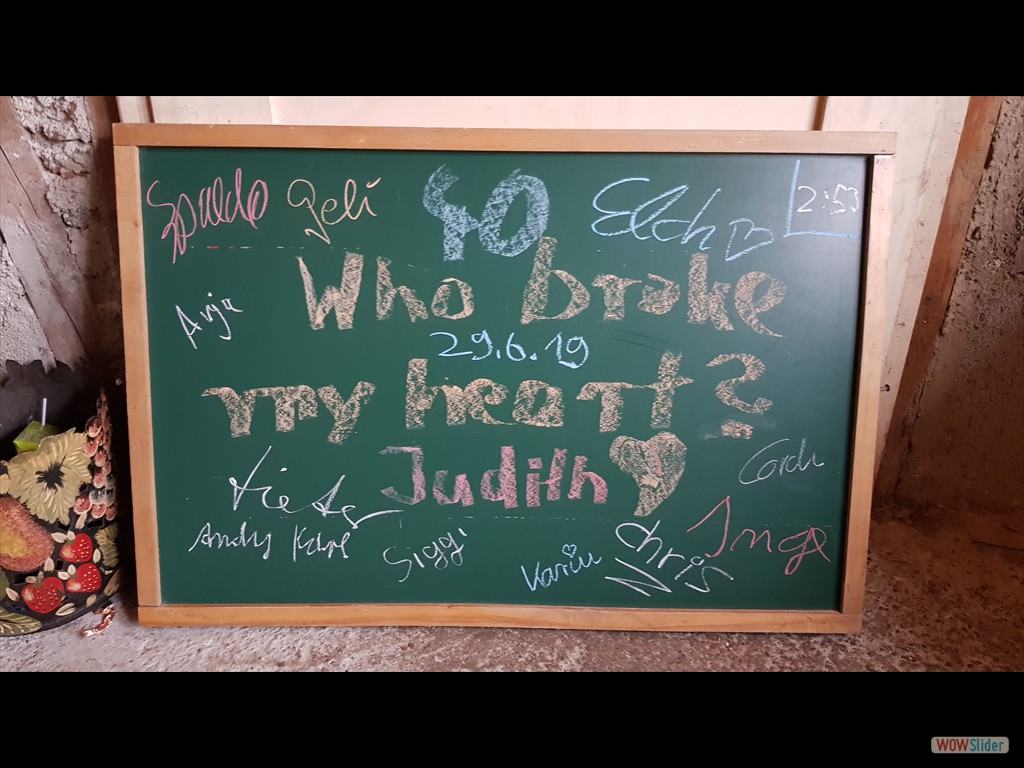 Spaldo Geli 40 Elch 2:53
Who broke
Anja
29.6.19
my heart?
Judith
Cordu
Dieter
Andy Karl
Siggi
Karin
Chris
Inga
WOWSlider